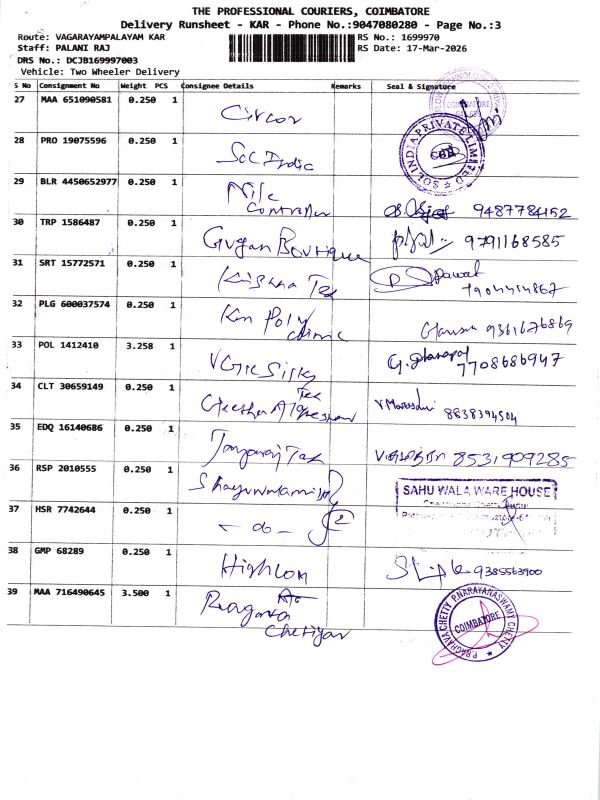 THE PROFESSIONAL COURIERS, COIMBATORE
Delivery Runsheet - KAR - Phone No.:9047080280 - Page No.:3
Route: VAGARAYAMPALAYAM KAR
RS No.: 1699970
Staff: PALANI RAJ
RS Date: 17-Mar-2026
DRS No.: DCJB169997003
Vehicle: Two Wheeler Delivery
S No Consignment No Weight PCS Consignee Details Remarks Seal & Signature
27 MAA 651090581 0.250 1 Circor
COIMBATORE
28 PRO 19075596 0.250 1 Sol India
SOL INDIA PRIVATE LIMITED
29 BLR 4450652977 0.250 1 9487784152
30 TRP 1586487 0.250 1 Gugan Boutique 9791168585
31 SRT 15772571 0.250 1 Krishna Tex 7904414867
32 PLG 600037574 0.250 1 Ken Poly 9361676869
33 POL 1412410 3.258 1 7708686947
34 CLT 30659149 0.250 1 8838394504
35 EDQ 16140686 0.250 1 8531909285
36 RSP 2010555 0.250 1
SAHU WALA WARE HOUSE
37 HSR 7742644 0.250 1 - do -
38 GMP 68289 0.250 1 Highcom 9385563900
39 MAA 716490645 3.500 1 Ragava
Chettiyar
P.RAGHAVA CHETTY P.NARAYANASWAMY CHETTY
COIMBATORE